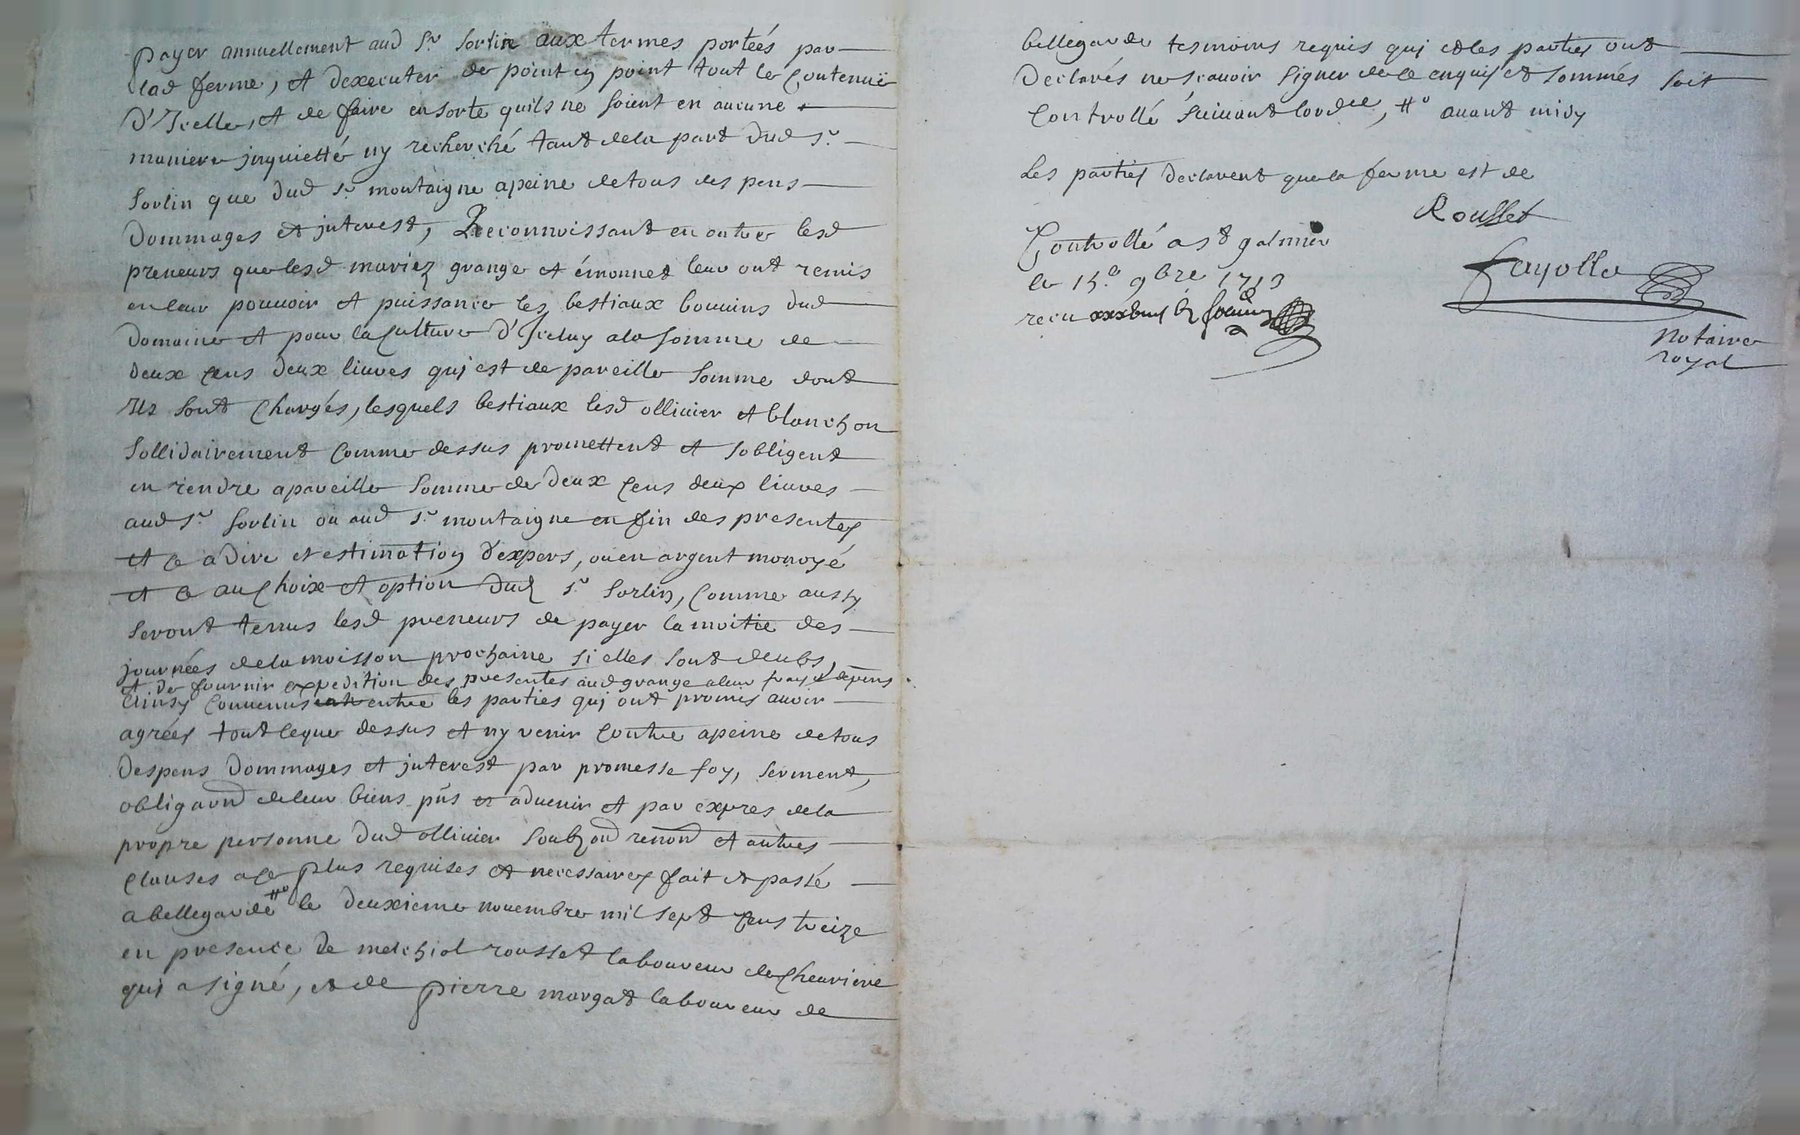 payer annuellement aud Sr Sorlin aux termes portées par
lad ferme, et dexecuter de point en point tout le Contenue
d'Icelle, et de faire en sorte quils ne soient en aucune
maniere jnquietté ny recherché tant dela part dud Sr
Sorlin que dud Sr montaigne apeine detous des pens
dommages et jnterest, Reconnoissant en outre lesd
preneurs que lesd mariez grange et émonnet leur ont remis
en leur pouvoir et puissance les bestiaux bouuins dud
domaine et pour la Culture d'Iceluy ala somme de
deux Cens deux liures quj est de pareille somme dont
Ils sont Chargés, lesquels bestiaux lesd ollinier et blanchon
sollidairement Comme dessus promettent et sobligent
en rendre apareille somme de deux Cens deux liures
aud Sr Sorlin ou aud Sr montaigne en fin des presentes
et Ce adire et estimation d'expers, ou en argent monoyé
et Ce au Choix et option dud Sr Sorlin, Comme aussy
seront tenus lesd preneurs de payer la moitié des
journées dela moisson prochaine si elles sont deubs,
et de fournir expedition des presentes aud grange aleur frais et depens
Ainsy Conuenus entre les parties quj ont promis auoir
agréés tout Ceque dessus et ny venir Contre apeine detous
despens dommages et jnterest par promesse foy, serment,
obligaõnd deleur biens pñs et aduenir et par expres dela
propre personne dud ollinier soubz and renond et autres
Clauses a Ce plus requises et necessaires fait et passé
a bellegarde ttò le deuxieme nouembre mil sept Cens treize
en presence de melchiol rousset laboureur de Cheuriere
quj a signé, et de pierre morgat laboureur de
bellegarde tesmoins requis quj et les parties ont
declarés ne scauoir signer de Ce enquis et sommés soit
Controllé suiuant lordce, tto auant midy
Les parties declarent que la ferme est de
Rousset
Controllé a St galmier
le 15e 9bre 1713
recu
fayolle
Notaire
royal